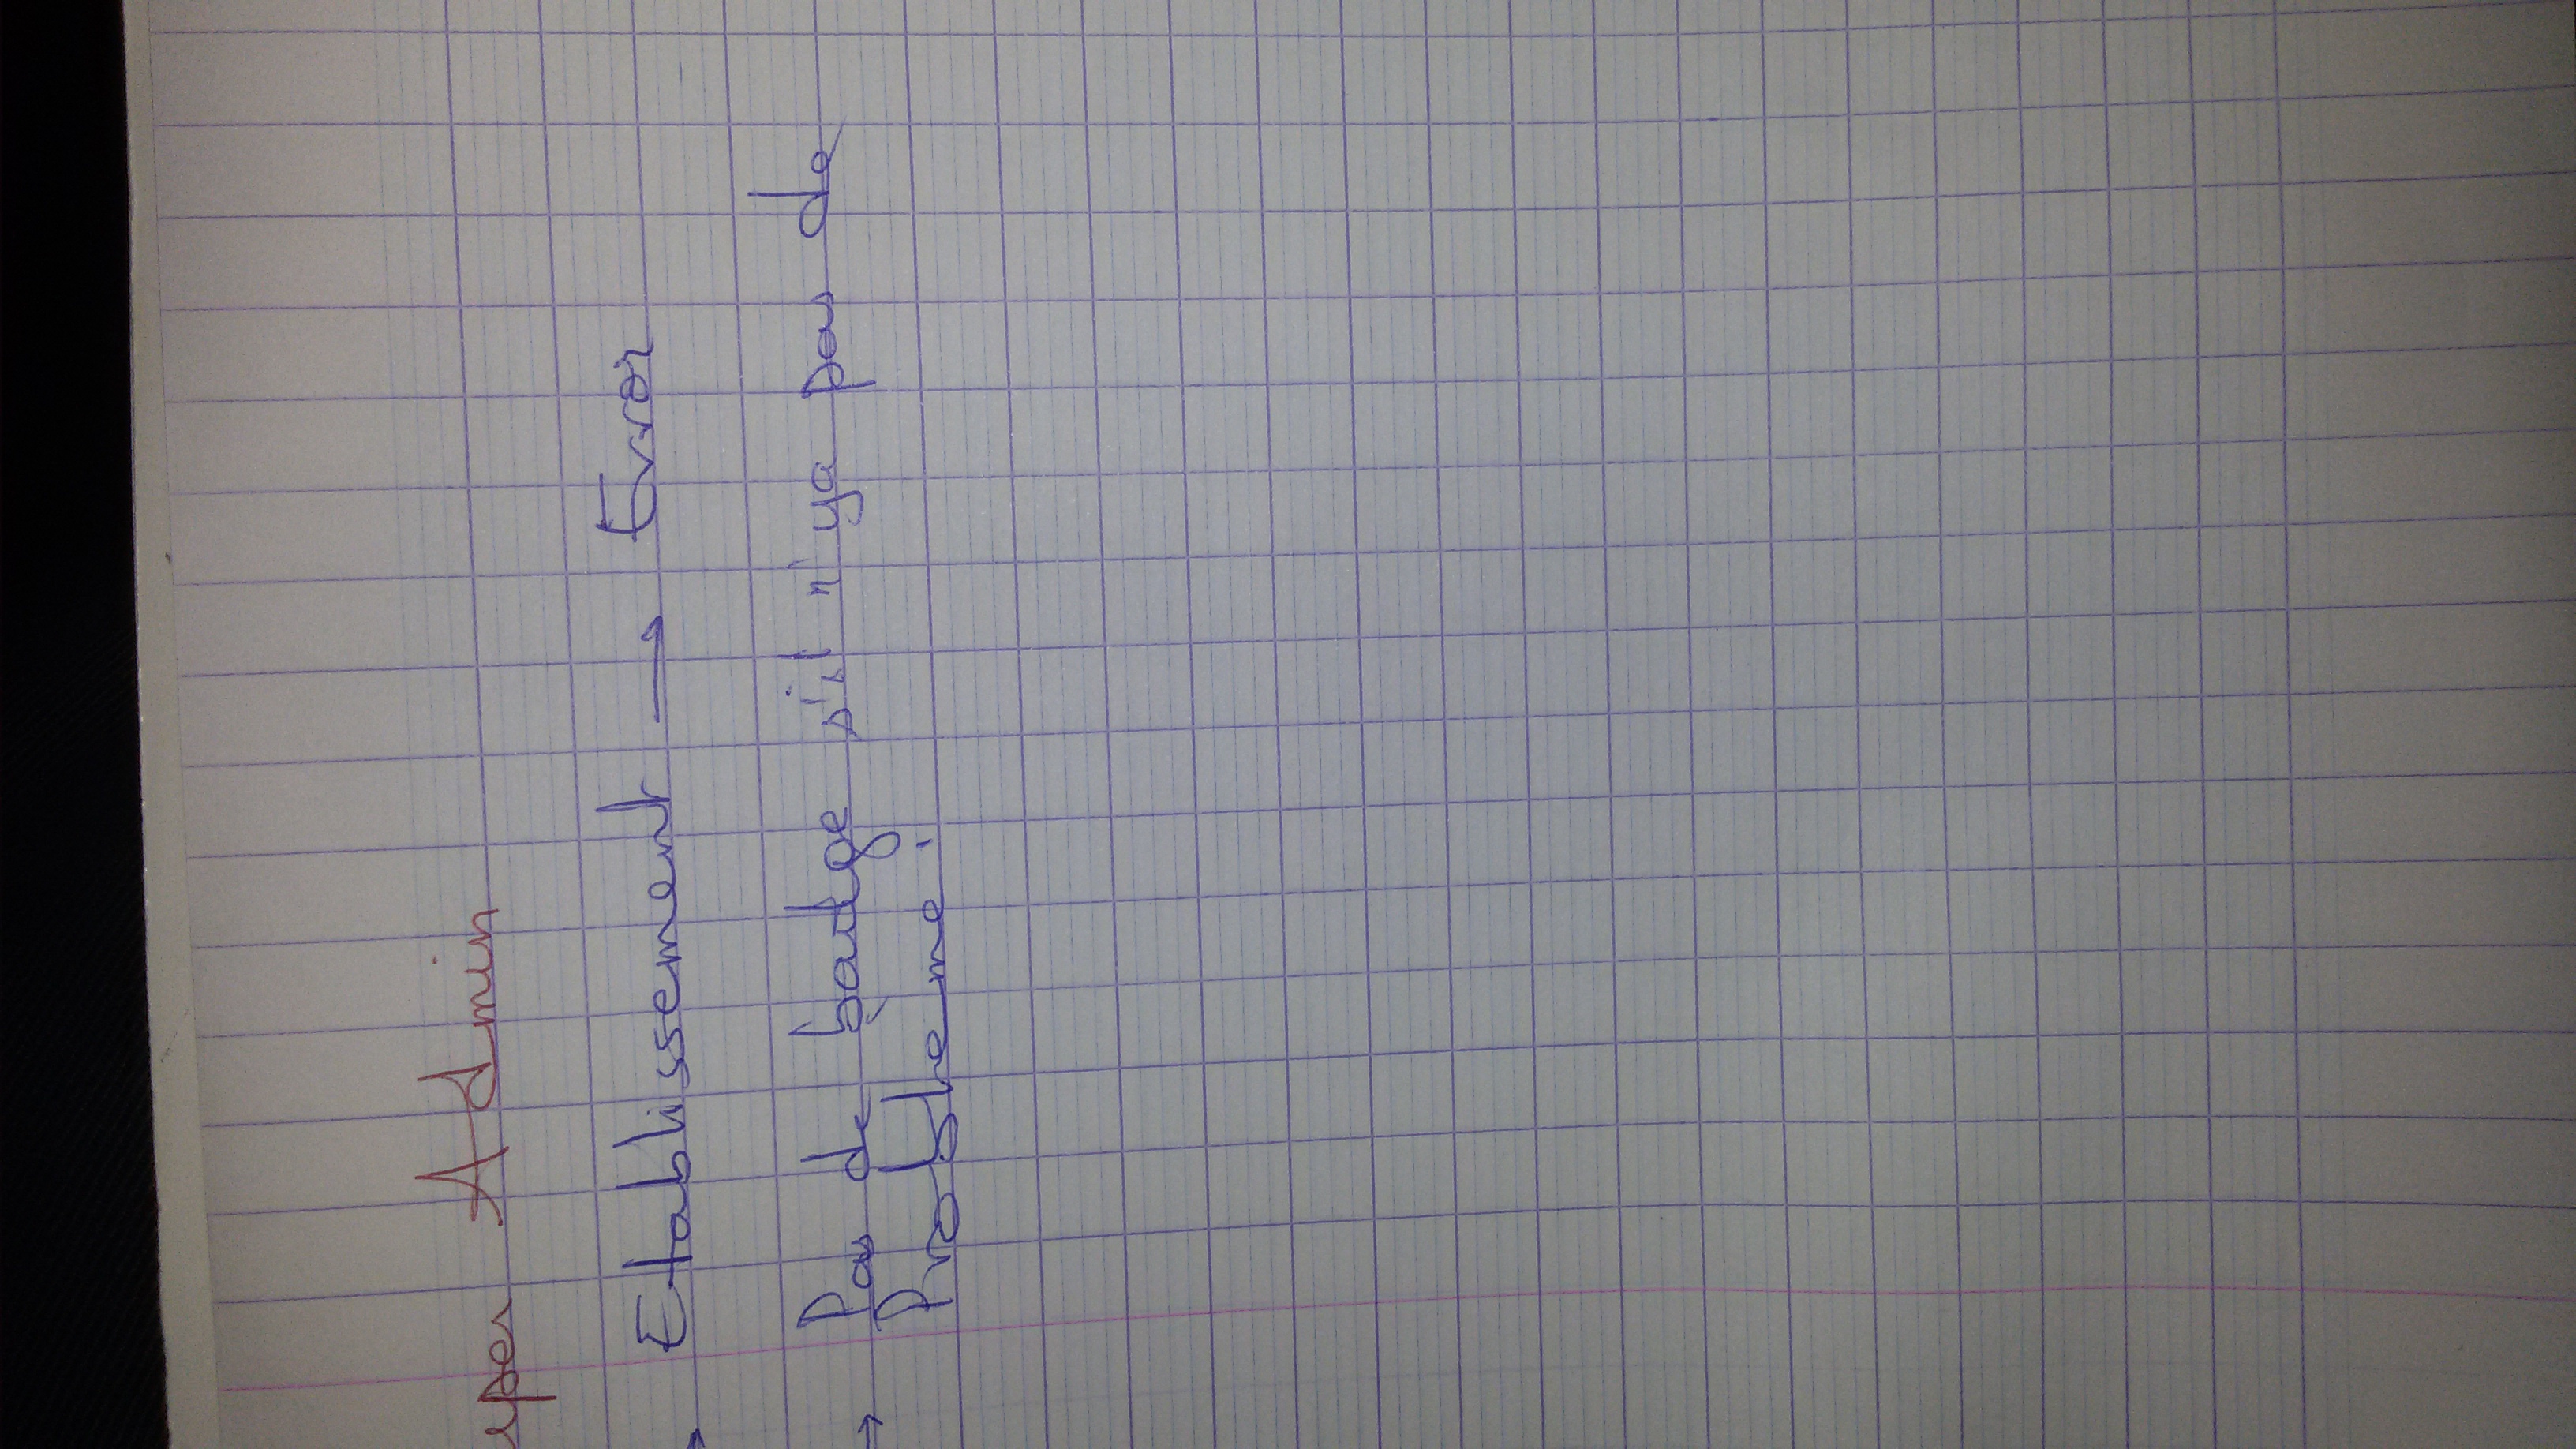 uper Admin
→ Etablissement → Error
→ Pas de badge s'il n'ya pas de
Probleme.